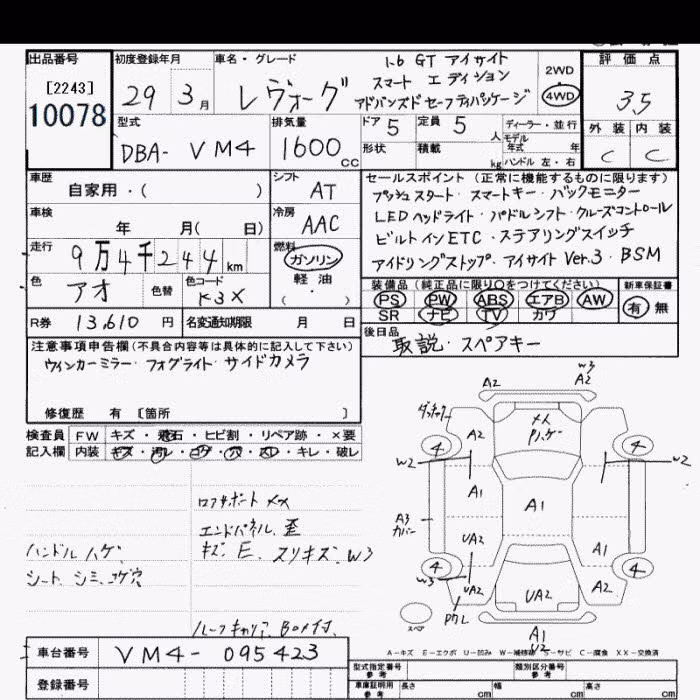 出品番号 初度登録年月 車名・グレード 評価点
[2243]
10078
29 3月
レヴォーグ
1.6 GT アイサイト
スマートエディション
アドバンスドセーフティパッケージ
2WD
4WD
3.5
外装 内装
C C
型式 排気量 ドア 5 定員 5人 ディーラー・並行
DBA- VM4 1600cc
形状 積載 kg モデル年式 年
ハンドル 左・右
車歴 自家用・( )
シフト AT
車検 年 月( 日)
冷房 AAC
走行 9万4千244km
燃料 ガソリン
軽油
( )
色 アオ 色替 色コード K3X
R券 13,610円 名変通知期限 月 日
セールスポイント(正常に機能するものに限ります)
プッシュスタート・スマートキー・バックモニター
LEDヘッドライト・パドルシフト・クルーズコントロール
ビルトインETC・ステアリングスイッチ
アイドリングストップ・アイサイト Ver.3・BSM
装備品(純正品に限り○をつけてください) 新車保証書
PS PW ABS エアB AW 有・無
SR ナビ TV カワ
後日品 取説・スペアキー
注意事項申告欄(不具合内容等は具体的に記入して下さい)
ウインカーミラー・フォグライト・サイドカメラ
修復歴 有 [箇所 ]
検査員 FW キズ・飛石・ヒビ割・リペア跡・×要
記入欄 内装 キズ・汚レ・コゲ・穴・スレ・キレ・破レ
ロアサポート XX
エンドパネル 歪
キズ、E、スリキズ、W3
ハンドル ハゲ
シート、シミ、コゲ穴
ルーフキャリア、BOX付
W3
A2 A2
A2
4 4
W2 W2
A1 A1
A3
カバー
UA2 A1
4 4
W3 UA2 UA2 A2
スペア
A1
U2
A-キズ E-エクボ U-凹み W-補修跡 S-サビ C-腐食 XX-交換済
車台番号 VM4-095423
登録番号
型式指定番号 参考 類別区分番号 参考
車庫証明用 参考 長さ cm 幅 cm 高さ cm